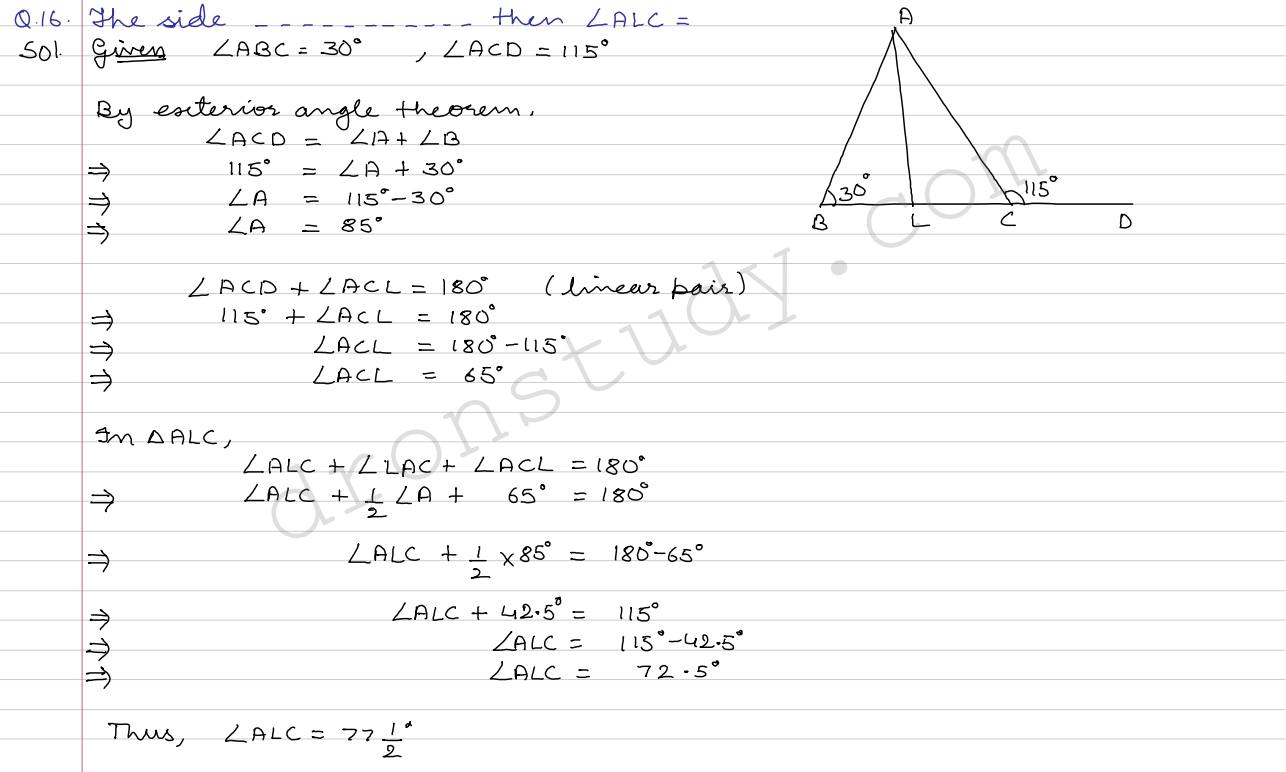 Q.16. The side ------------ then ∠ALC =
Sol. Given ∠ABC = 30° , ∠ACD = 115°
By exterior angle theorem,
∠ACD = ∠A + ∠B
⇒ 115° = ∠A + 30°
⇒ ∠A = 115° - 30°
⇒ ∠A = 85°
∠ACD + ∠ACL = 180° (linear pair)
⇒ 115° + ∠ACL = 180°
⇒ ∠ACL = 180° - 115°
⇒ ∠ACL = 65°
In △ALC,
∠ALC + ∠LAC + ∠ACL = 180°
⇒ ∠ALC + 1/2 ∠A + 65° = 180°
⇒ ∠ALC + 1/2 × 85° = 180° - 65°
⇒ ∠ALC + 42.5° = 115°
⇒ ∠ALC = 115° - 42.5°
⇒ ∠ALC = 72.5°
Thus, ∠ALC = 77 1/2°
A
30° 115°
B L C D
dronstudy.com